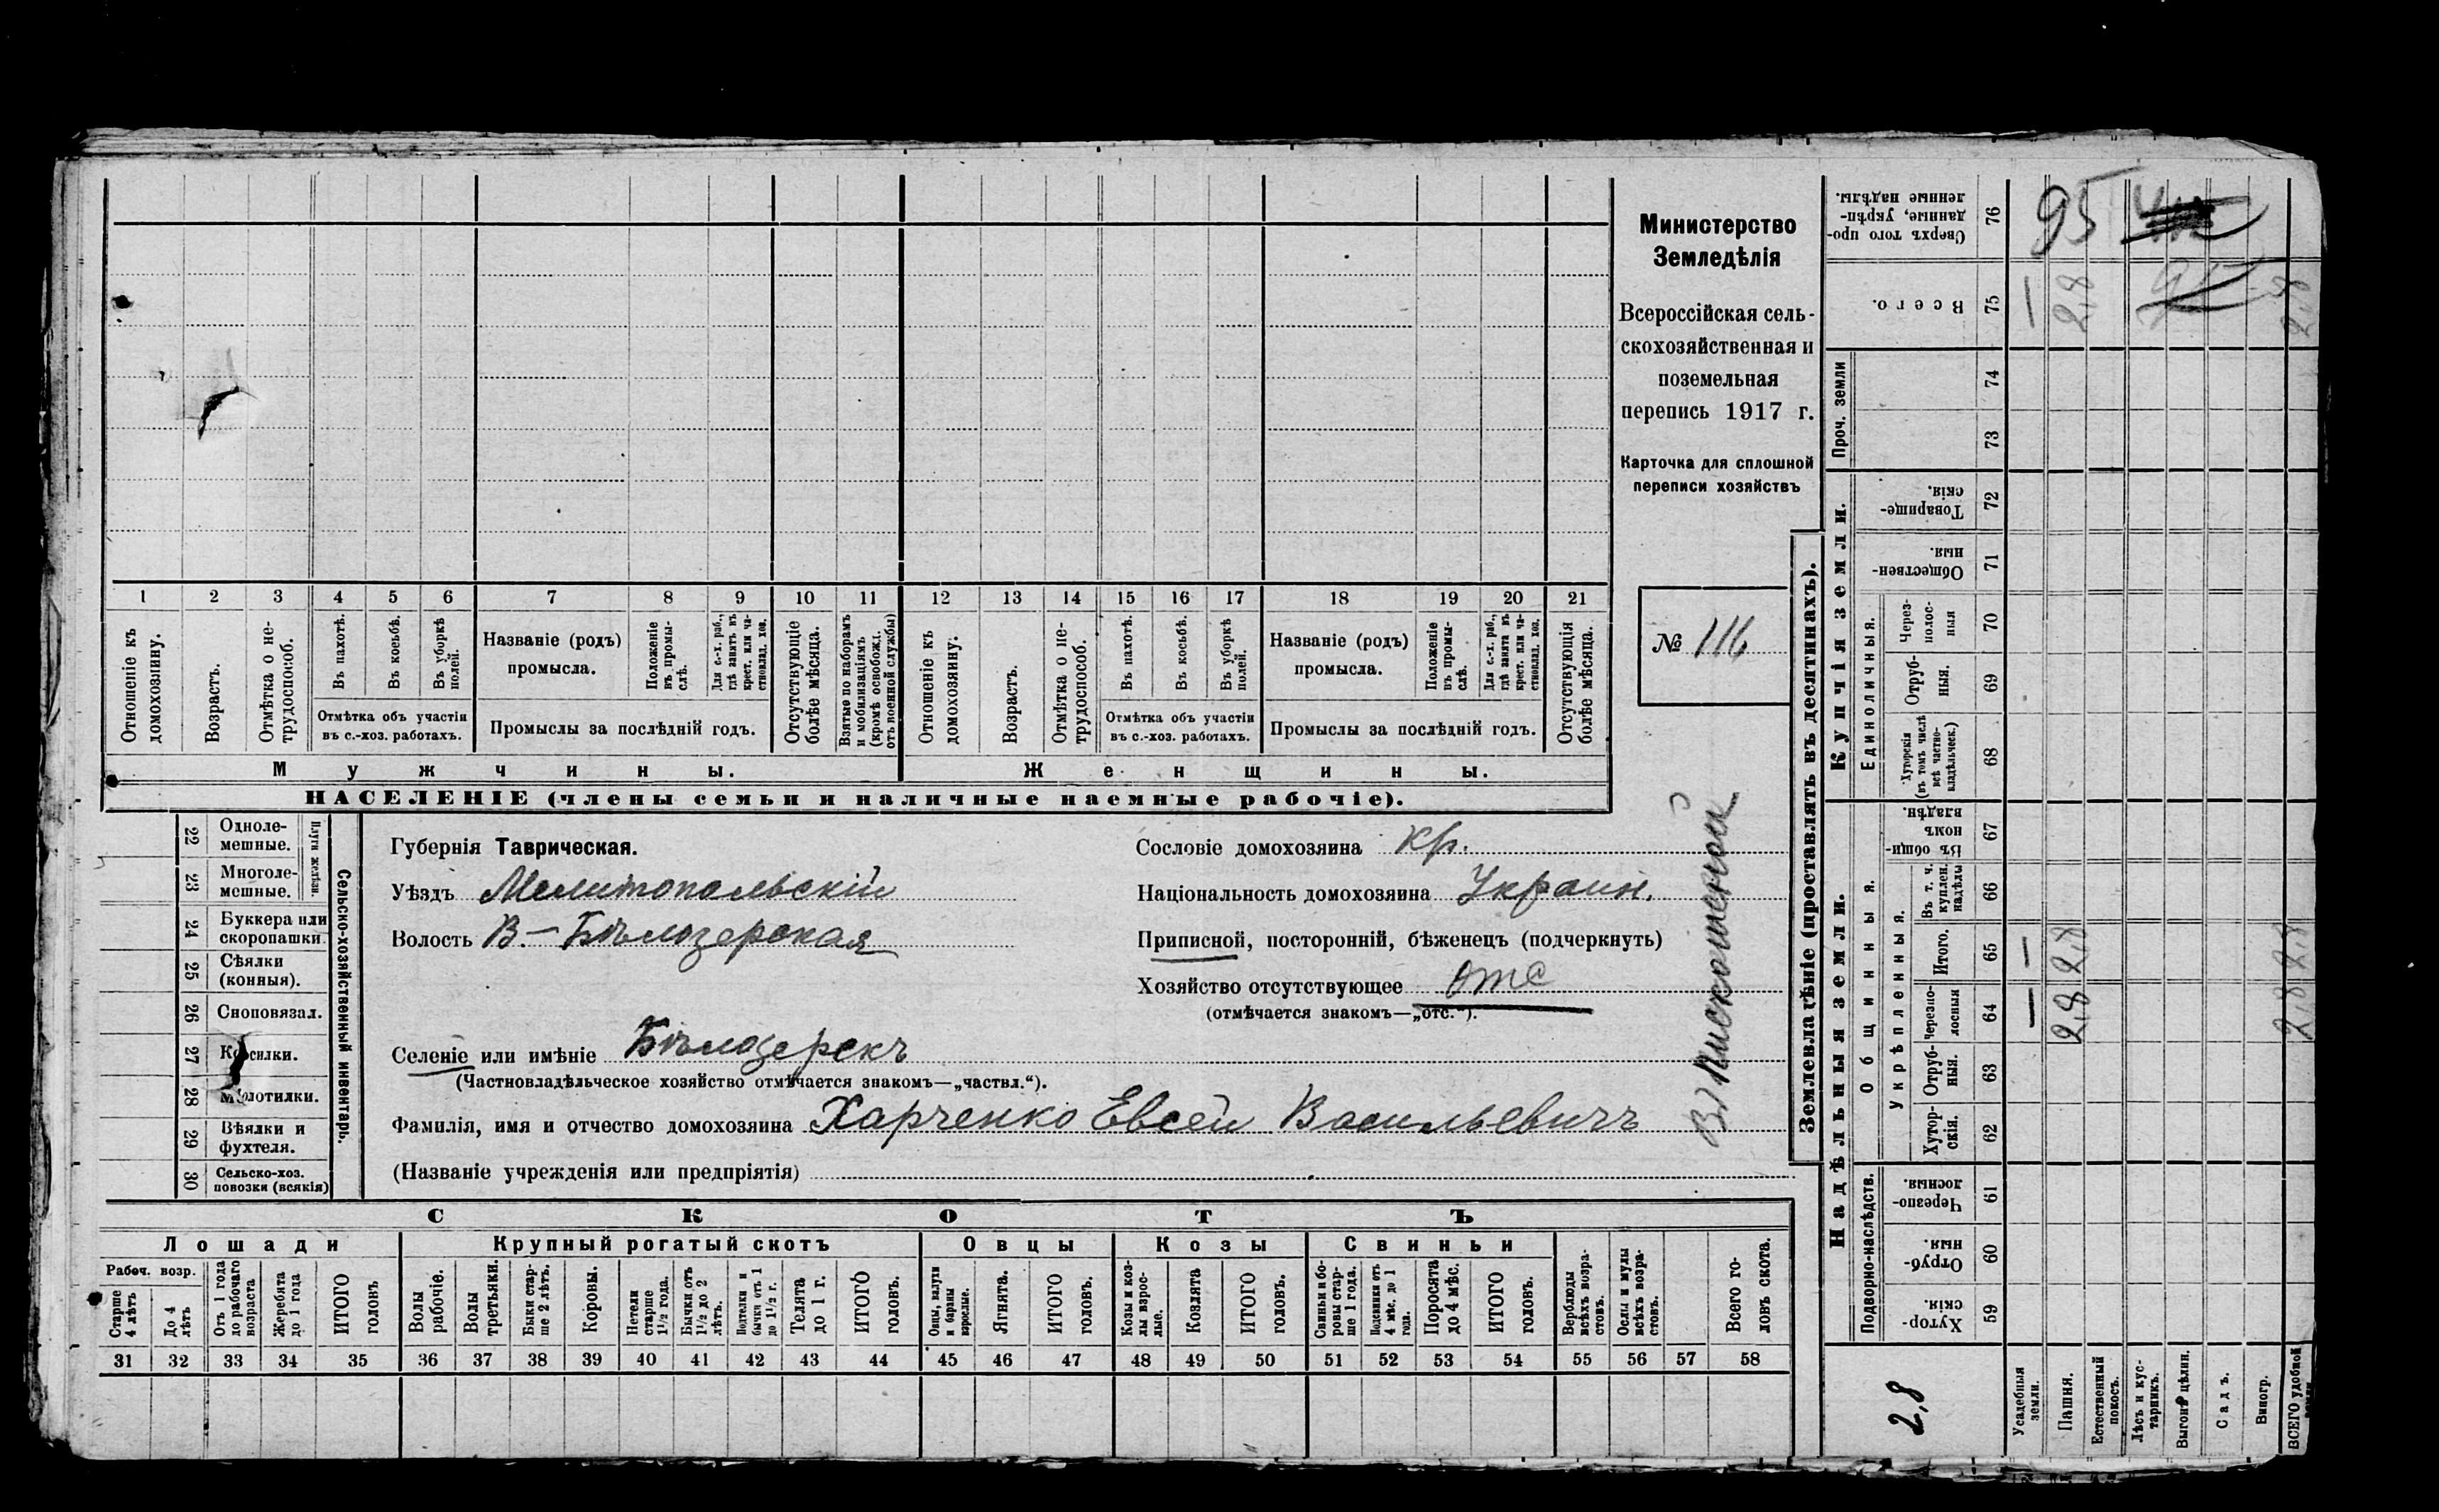 1 2 3 4 5 6 7 8 9 10 11 12 13 14 15 16 17 18 19 20 21
Отношеніе къ домохозяину.
Возрастъ.
Отмѣтка о не-трудоспособ.
Въ пахотѣ.
Въ косьбѣ.
Въ уборкѣ полей.
Отмѣтка объ участіи
въ с.-хоз. работахъ.
Названіе (родъ)
промысла.
Положеніе въ промы-слѣ.
Для с.-х. раб., гдѣ занятъ въ крест. или ча-стновлад. хоз.
Промыслы за послѣдній годъ.
Отсутствующіе болѣе мѣсяца.
Взятые по наборамъ и мобилизаціямъ (кромѣ освобожд. отъ военной службы)
Отношеніе къ домохозяину.
Возрастъ.
Отмѣтка о не-трудоспособ.
Въ пахотѣ.
Въ косьбѣ.
Въ уборкѣ полей.
Отмѣтка объ участіи
въ с.-хоз. работахъ.
Названіе (родъ)
промысла.
Положеніе въ промы-слѣ.
Для с.-х. раб., гдѣ занята въ крест. или ча-стновлад. хоз.
Промыслы за послѣдній годъ.
Отсутствующія болѣе мѣсяца.
Мужчины.
Женщины.
НАСЕЛЕНІЕ (члены семьи и наличные наемные рабочіе).
Министерство
Земледѣлія
Всероссійская сель-
скохозяйственная и
поземельная
перепись 1917 г.
Карточка для сплошной
переписи хозяйствъ
№ 116
22 Одноле-мешные.
23 Многоле-мешные.
Плуги желѣзн.
24 Буккера или скоропашки.
25 Сѣялки (конныя).
26 Сноповязал.
27 Косилки.
28 Молотилки.
29 Вѣялки и фухтеля.
30 Сельско-хоз. повозки (всякія)
Сельско-хозяйственный инвентарь.
Губернія Таврическая.
Уѣздъ Мелитопольскій
Волость В.-Бѣлозерская
Селеніе или имѣніе Бѣлозерскъ
(Частновладѣльческое хозяйство отмѣчается знакомъ—„частвл.“).
Фамилія, имя и отчество домохозяина Харченко Евсей Васильевичъ
(Названіе учрежденія или предпріятія)
Сословіе домохозяина кр.
Національность домохозяина Украин.
Приписной, посторонній, бѣженецъ (подчеркнуть)
Хозяйство отсутствующее отс
(отмѣчается знакомъ—„отс.“).
СКОТЪ
Лошади
Рабоч. возр.
Старше 4 лѣтъ
До 4 лѣтъ
Отъ 1 года до рабочаго возраста
Жеребята до 1 года
ИТОГО головъ
Крупный рогатый скотъ
Волы рабочіе.
Волы третьяки.
Быки стар-ше 2 лѣтъ.
Коровы.
Нетели старше 1½ года.
Бычки отъ 1½ до 2 лѣтъ.
Подтелки и бычки отъ 1 до 1½ г.
Телята до 1 г.
ИТОГО головъ.
Овцы
Овцы, валухи и бараны взрослые.
Ягнята.
ИТОГО головъ.
Козы
Козы и коз-лы взрос-лые.
Козлята
ИТОГО головъ.
Свиньи
Свиньи и бо-ровы стар-ше 1 года.
Подсвинки отъ 4 мѣс. до 1 года.
Поросята до 4 мѣс.
ИТОГО головъ.
Верблюды всѣхъ возра-стовъ.
Ослы и мулы всѣхъ возра-стовъ.
Всего го-ловъ скота.
31 32 33 34 35 36 37 38 39 40 41 42 43 44 45 46 47 48 49 50 51 52 53 54 55 56 57 58
Землевладѣніе (проставлять въ десятинахъ).
Сверхъ того про-данные, укрѣп-ленные надѣлы. 76
Всего. 75
Проч. земли
74
73
Купчія земли.
Товарище-скія. 72
Обществен-ныя. 71
Единоличныя.
Через-полос-ныя 70
Отруб-ныя. 69
Хуторскія (въ томъ числѣ всѣ частно-владѣльческ.) 68
Надѣльныя земли.
Общинныя.
Въ общин-номъ владѣн. 67
Укрѣпленныя.
Въ т. ч. куплен. надѣлы 66
Итого. 65
Черезпо-лосныя 64
Отруб-ныя. 63
Хутор-скія. 62
Подворно-наслѣдств.
Черезпо-лосныя. 61
Отруб-ныя. 60
Хутор-скія. 59
95
2,8
2,8
2,8 2,8
2,8 2,8
2,8
Усадебныя земли.
Пашня.
Естественный покосъ.
Лѣсъ и кус-тарникъ.
Выгонъ цѣлин.
Садъ.
Виногр.
ВСЕГО удобной